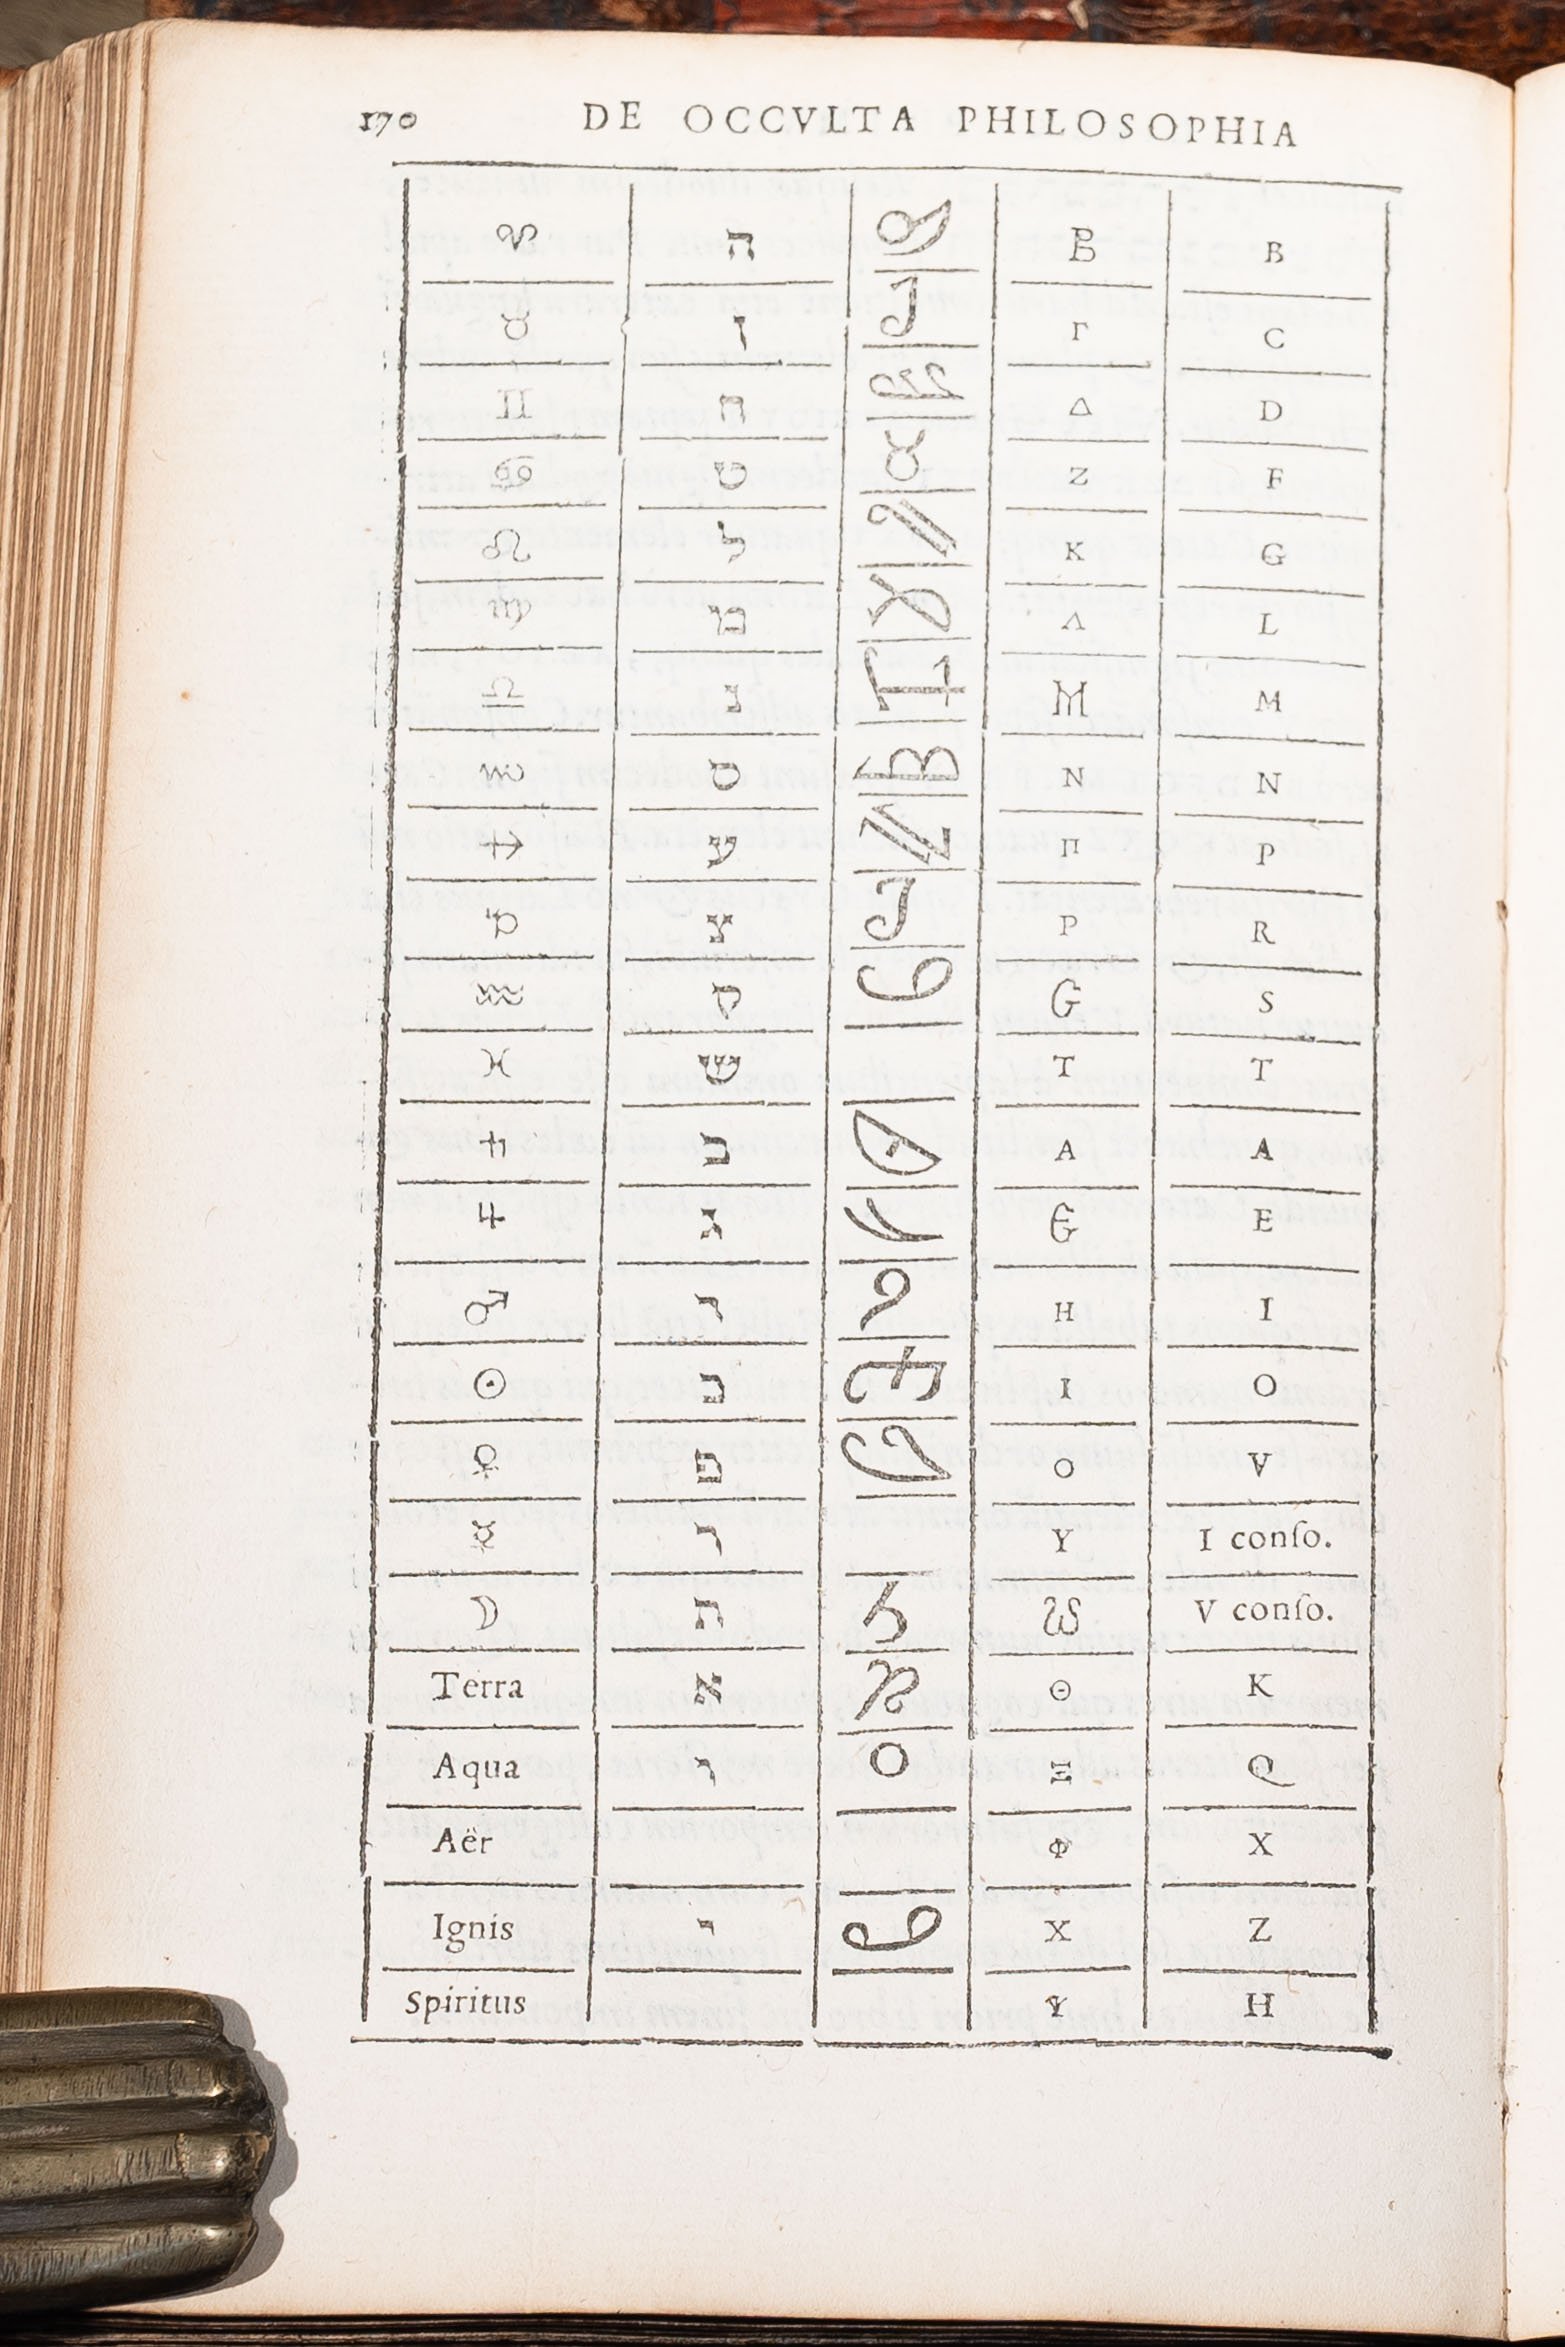 170 DE OCCVLTA PHILOSOPHIA
♈ ה Β B
♉ ז Γ C
♊ ח Δ D
♋ ט Ζ F
♌ ל Κ G
♍ מ Λ L
♎ נ Μ M
♏ ס Ν N
♐ ע Π P
♑ צ Ρ R
♒ ק Ϭ S
♓ ש Τ T
♄ ב Α A
♃ ג Ε E
♂ ד Η I
☉ כ Ι O
♀ פ Ο V
☿ ר Υ I conſo.
☽ ת Ω V conſo.
Terra א Θ K
Aqua ו Ξ Q
Aër Φ X
Ignis י Χ Z
Spiritus Ψ H